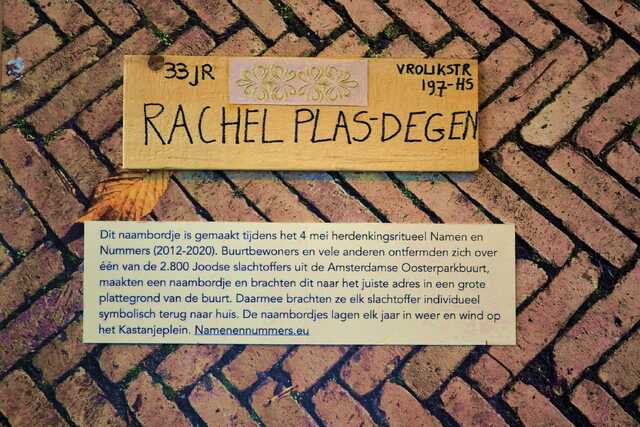 33 JR
VROLIKSTR
197-HS
RACHEL PLAS-DEGEN
Dit naambordje is gemaakt tijdens het 4 mei herdenkingsritueel Namen en
Nummers (2012-2020). Buurtbewoners en vele anderen ontfermden zich over
één van de 2.800 Joodse slachtoffers uit de Amsterdamse Oosterparkbuurt,
maakten een naambordje en brachten dit naar het juiste adres in een grote
plattegrond van de buurt. Daarmee brachten ze elk slachtoffer individueel
symbolisch terug naar huis. De naambordjes lagen elk jaar in weer en wind op
het Kastanjeplein. Namenennummers.eu